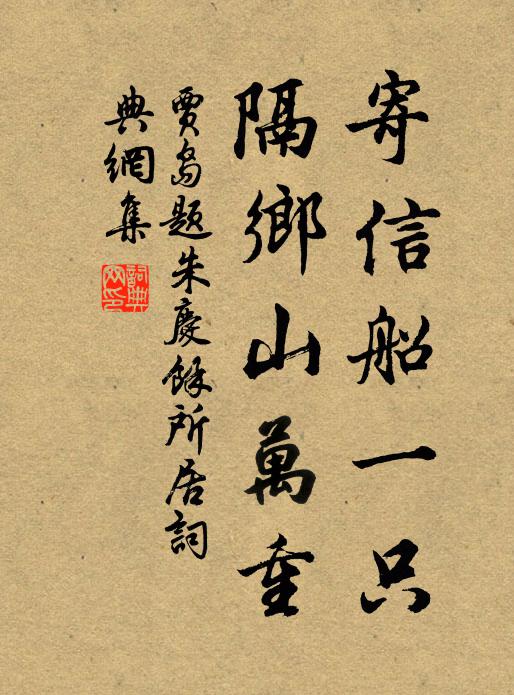 寄信船一只
隔鄉山萬重
賈島題朱慶餘所居詞
典網集
詞典
网印